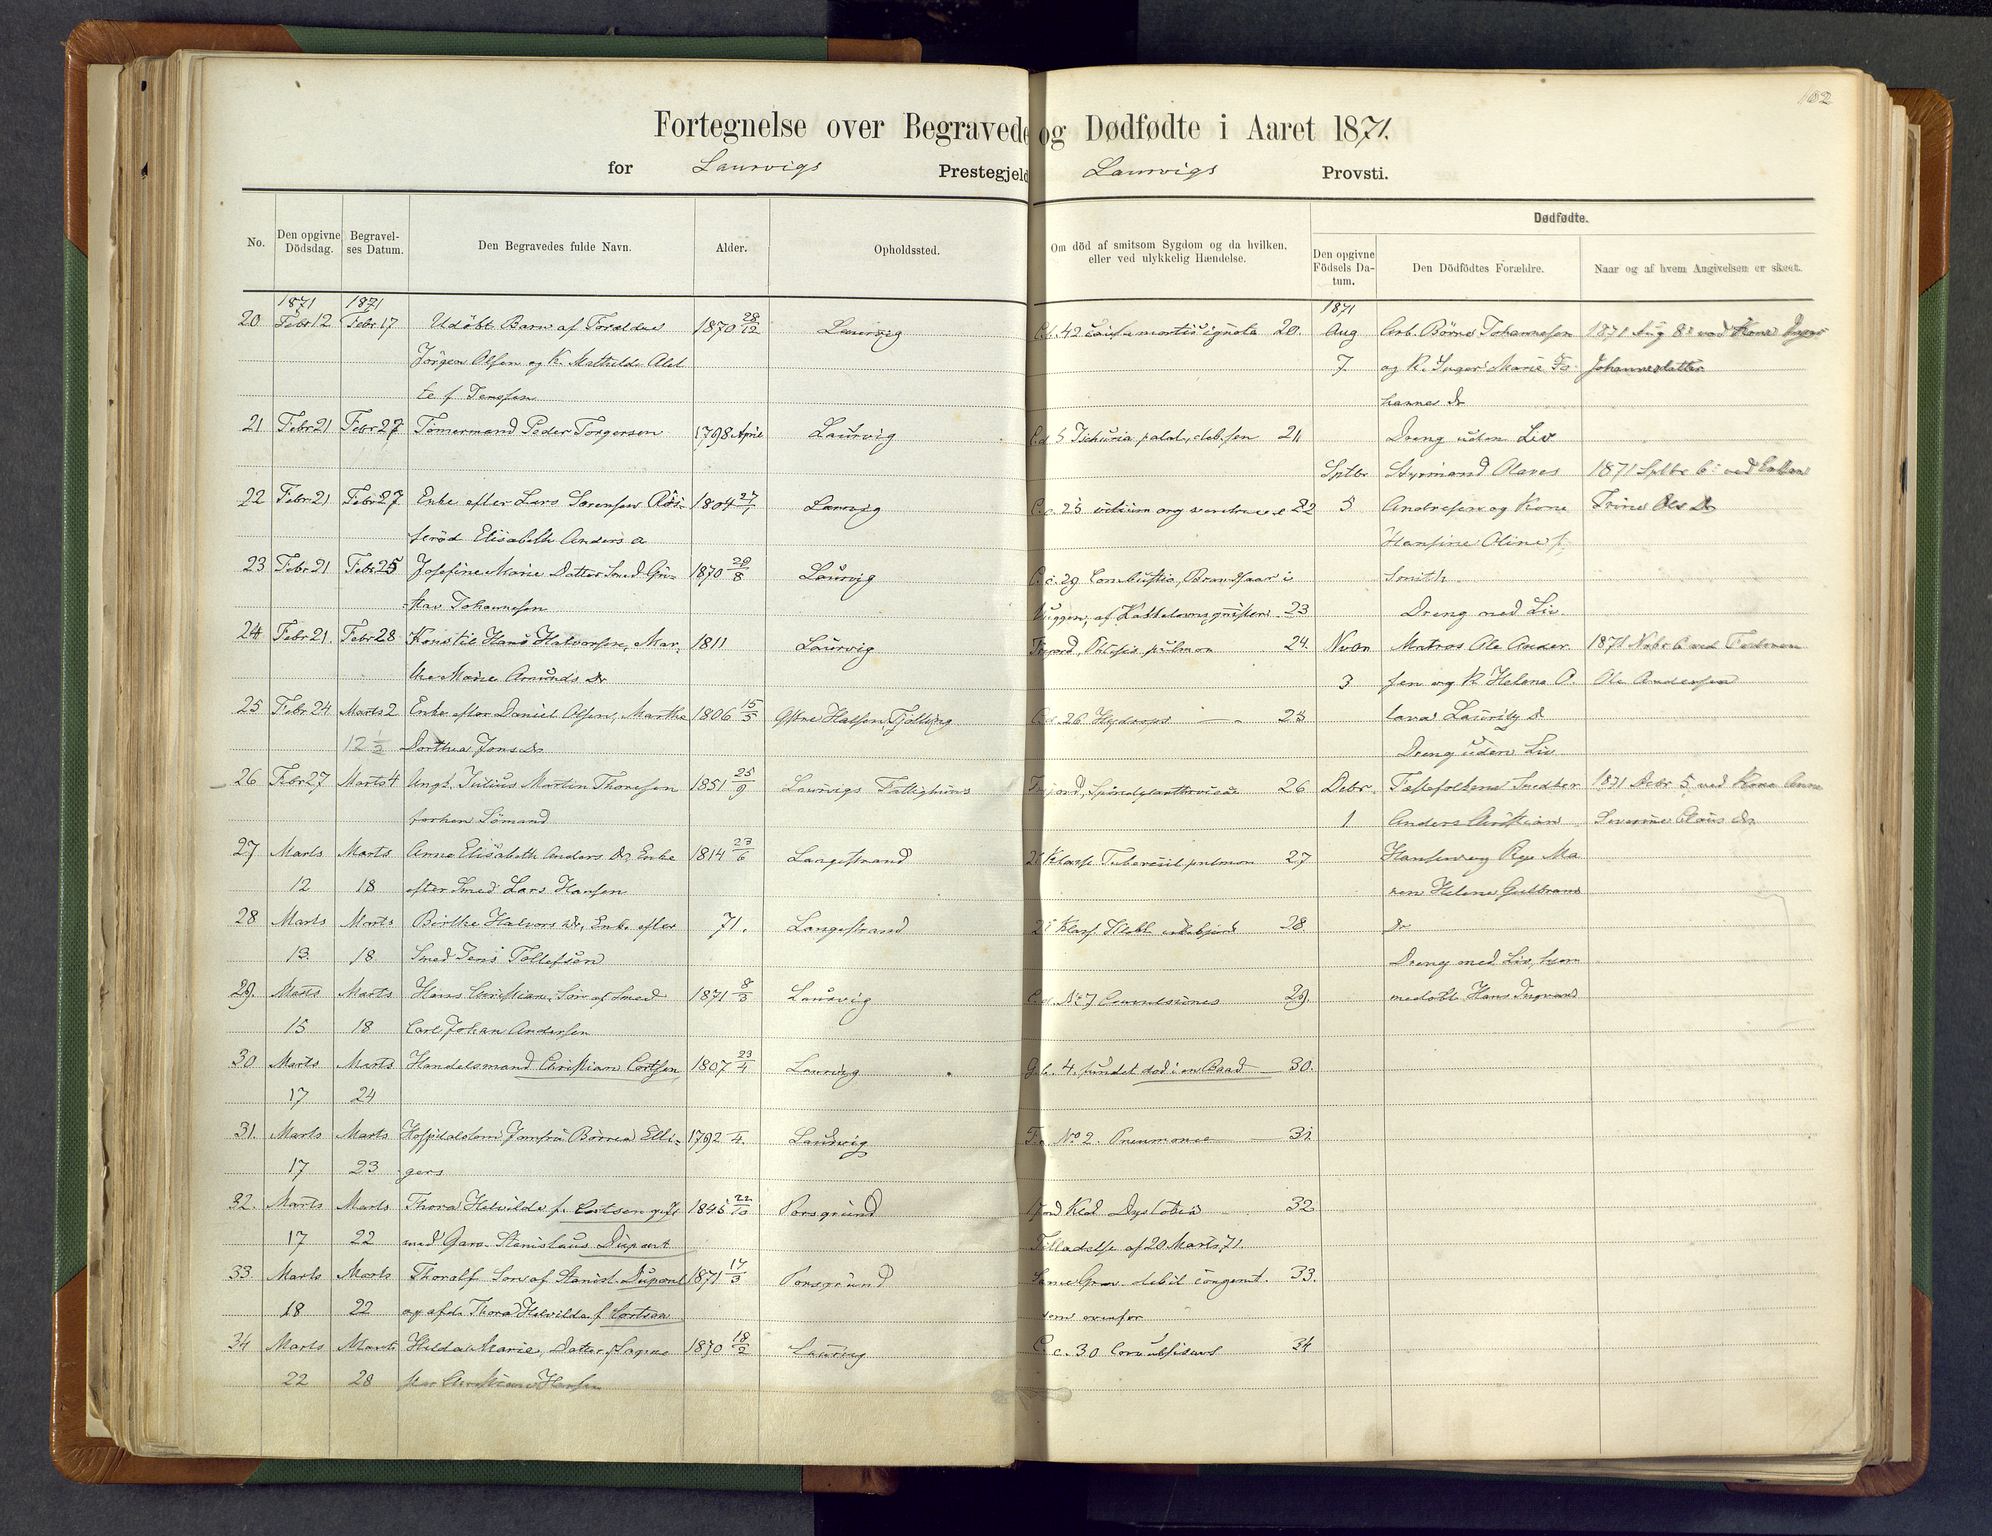 102
Fortegnelse over Begravede og Dødfødte i Aaret 1871.
for Laurvigs Prestegjeld Laurvigs Provsti.
No.
Den opgivne Dödsdag.
Begravelses Datum.
Den Begravedes fulde Navn.
Alder.
Opholdssted.
Om död af smitsom Sygdom og da hvilken, eller ved ulykkelig Hændelse.
Dødfødte.
Den opgivne Födsels Datum.
Den Dödfödtes Forældre.
Naar og af hvem Angivelsen er skeet.
1871 1871 1871
20 Febr 12 Febr 17 Udöbt Barn af Forældre 1870 28/12 Laurvig 20.
Jörgen Olsen og K. Mathilde Alet
te f. Jenssen
21 Febr 21 Febr 27 Tömermand Peder Torgersen 1798 April Laurvig 21
22 Febr 21 Febr 27 Enke efter Lars Sorensen 1804 27/1 Laurvig 22
Elisabeth Anders
23 Febr 21 Febr 25 Josefine Marie Datter Smed Gu- 1870 29/8 Laurvig C.c. 29 Combustio, Brandsaar i
stav Johannesen Vuggen, af 23
24 Febr 21. Febr 28 Kone til Hans Halvorsen, Mar- 1811 Laurvig Phtisis pulmon 24.
the Marie Amunds Dr
25 Febr 24 Marts 2 Enke efter Daniel Olsen, Marthe 1806 15/5 Östre Halsen, Tjölling 26 Hydrops 25
12 1/2 Dorthea Jons Dr
26 Febr 27 Marts 4 Ungk. Julius Martin Thoresen 1851 25/9 Laurvigs Fattighuus 26
Sömand
27 Marts Marts Anne Elisabeth Anders Dr, Enke 1814 23/6 Langestrand 2 Klasse Tubercul pulmon 27
12 18 efter Smed Lars Hansen
28 Marts Marts Birthe Halvors Dr, Enke efter 71. Langestrand 2 Klasse 28
13. 18 Smed Jens Tollefsen
29. Marts Marts Hans Christian, Sön af Smed 1871 8/3 Laurvig No 7 29.
15 18 Carl Johan Andersen
30 Marts Marts Handelsmand Christian Cortsen, 1807 23/4 Laurvig 4. fundet död i en Baad 30.
17 24
31. Marts Marts Hospitalslem Jomfru Börrea Elli- 1792 1/4. Laurvig No 2. Pneumonie 31
17 23 gers
32. Marts Marts Thora Helvilde f. Cortsen gift 1845 22/10 Porsgrund Jord Klad 32
17 22 med Garv. Stanislaus Dupont Tilladelse af 20 Marts 71.
33. Marts Marts Thoralf Sön af Stanisl. Dupont 1871 17/3 Porsgrund Same Grav debil congenit. 33.
18 22 og afd. Thora Helvilda f Cortsen som ovenfor
34 Marts Marts Hilda Marie, Datter f. 1870 18/2 Laurvig C. c. 30 Convulsions 34
22 28 Christian Hansen
Aug Arb. Börre Johannesen 1871 Aug 8 ved Kone Inger
7 og K. Inger Marie Jo Johannesdatter
hannes Dr
Dreng uden Liv
Sptbr Styrmand Olaves 1871 Sptbr 6 ved
5 Andresen og Kone Trine Ols Dr
Hansine Oline f.
Smith.
Dreng med Liv
Nvbr Matros Ole Ander 1871 Nvbr 6 ved Faderen
3 sen og K Helene O. Ole Andersen
Dreng uden Liv
Debr. Fæstefolkene Snedker 1871 Debr 5 ved Kone Anne
1 Anders Christian Severine Claus Dr
Hansen og Pge Ma
ren Helene Gulbrans
Dr
Dreng med Liv, hjem
medöbt Hans Ingvard